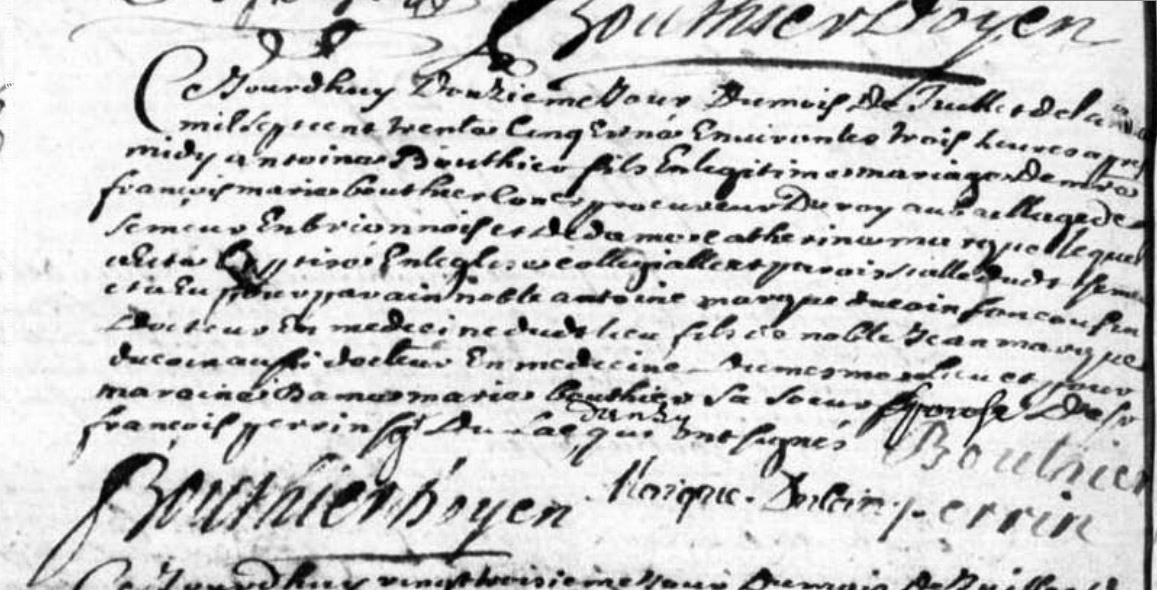 Bouthier Doyen
Ce Jourdhuy Douzieme Jour Du mois De Juillet de la
mil sept cent trente Cinq Est né Environ les trois heures apres
midy antoine Bouthier fils En legitime mariage De mre
françois marie bouthier procureur Du roy au bailliage de
semeur En brionnois et de dame catherine marque lequel
a Este Baptisé En leglise collegialle et paroissialle dudt Sem
et a Eu pour parain noble antoine marque ducoin son cousin
Docteur En medecine dudt lieu fils de noble Jean marque
ducoin aussi docteur En medecine Du mesme lieu et pour
maraine Dame marie bouthier sa soeur Epouse De Sr
danzy
françois perrin sgr Du Lac qui ont signés Bouthier
Bouthier Doyen Marque Ducoin perrin
Ce Jourdhuy vingt troisieme Jour Du mois De Juillet